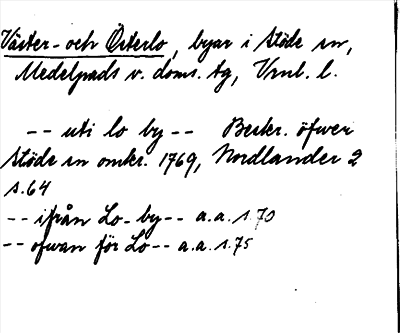 Väster- och Österlo, byar i Stöde sn,
Medelpads v. doms. tg, Vrnl. l.
-- uti lo by -- Beskr. öfver
Stöde sn omkr. 1769, Nordlander 2
s. 64
-- ifrån Lo-by -- a.a. s. 70
-- ofwan för Lo -- a.a. s. 75